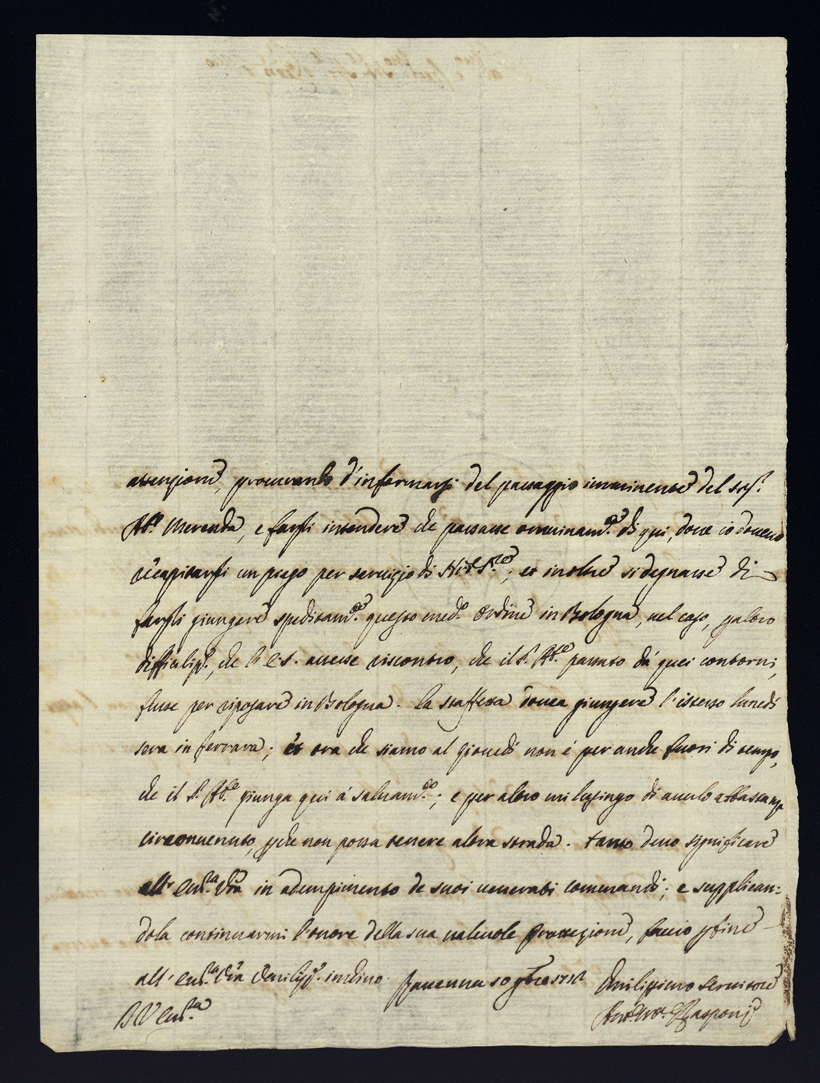 attenzione, procurando d'informarsi del passaggio imminente del Sigr.
Abe. Merenda, e farsli intendere che passasse ominam.te di qui, dove io doveuo
recapitarsli un piego per servizio di Nro. Sre., et inoltre si degnasse di
farsli giungere speditam.te questo med.o ordine in Bologna, nel caso, p altro
difficiliss.o, che V. E. S. avesse riscontro, che il S. Abe. passato da quei contorni,
fusse per riposare in Bologna. La staffetta dovea giungere l'istesso lunedì
sera in ferrara; et ora che siamo al giovedì non è per anche fuori di tempo,
che il S. Abe. giunga qui a salvam.to; e per altro mi lusingo di averlo abbastanza
circonvenuto, p che non possa tenere altra strada. Tanto devo significare
all' Em.za Vra in adempimento de suoi venerati comandi; e supplican=
dola continuarmi l'onore della sua valevole protezione, faccio p fine
all' Em.za Vra umiliss.o inchino. Ravenna 10
Umilissimo Servitore
D V Em.za
Rasponi